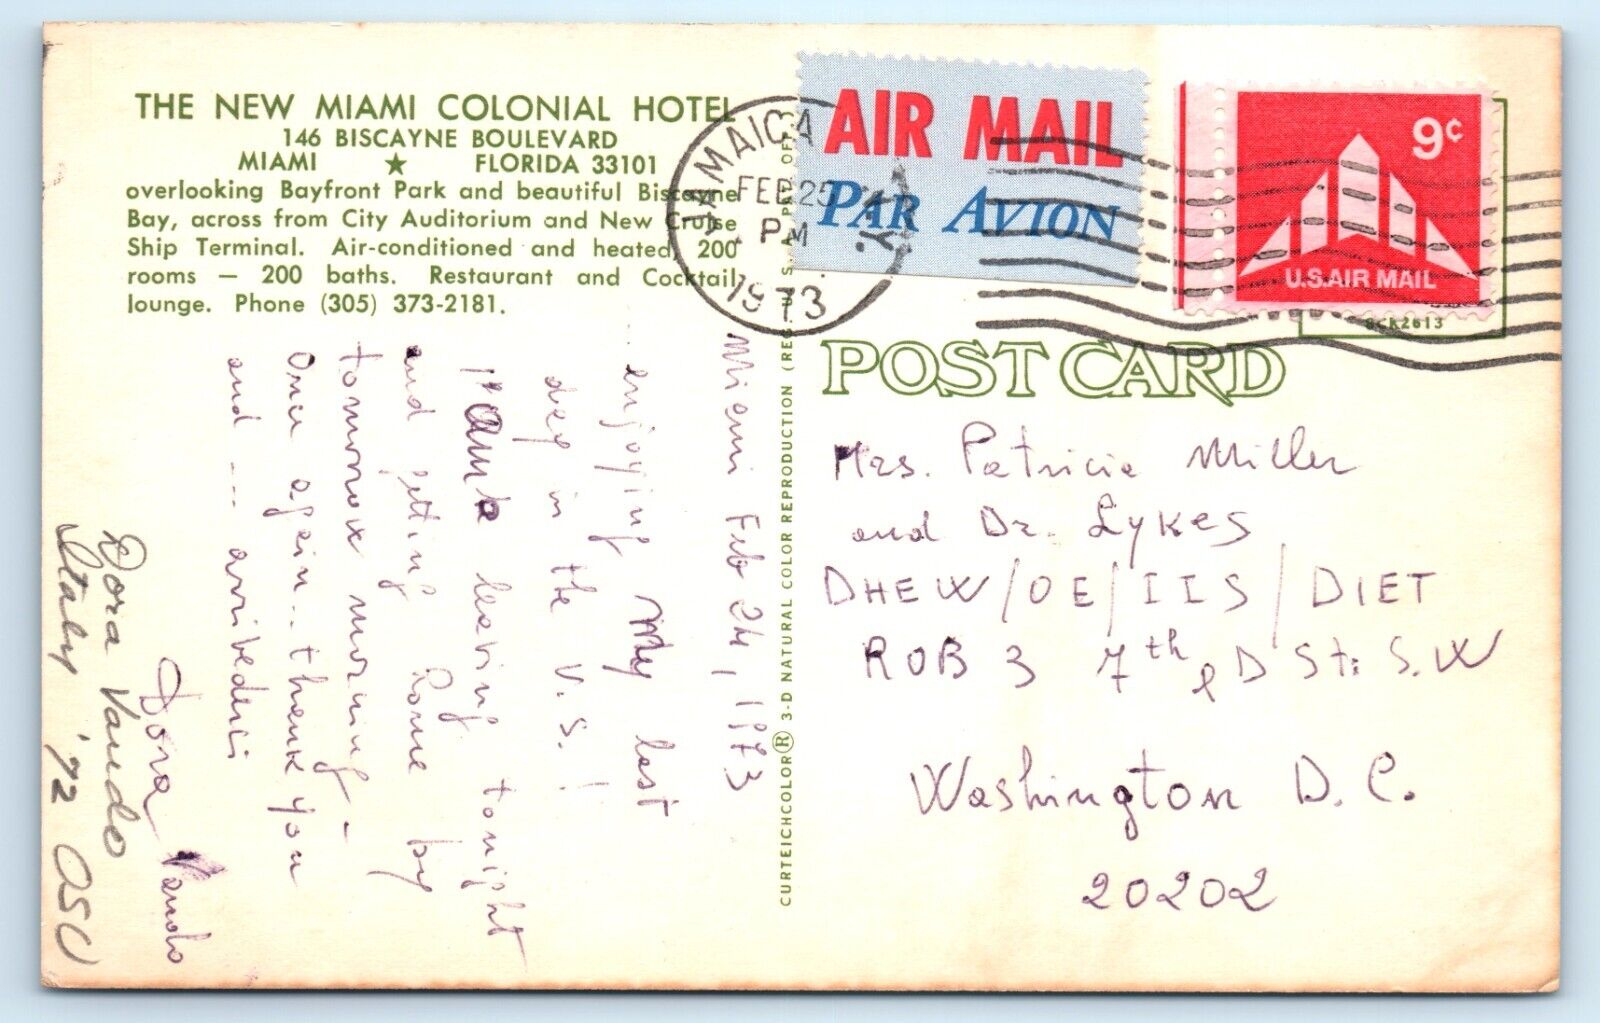 THE NEW MIAMI COLONIAL HOTEL
146 BISCAYNE BOULEVARD
MIAMI ★ FLORIDA 33101
overlooking Bayfront Park and beautiful Biscayne
Bay, across from City Auditorium and New Cruise
Ship Terminal. Air-conditioned and heated 200
rooms — 200 baths. Restaurant and Cocktail
lounge. Phone (305) 373-2181.
Miami Feb 24, 1973
... enjoying my last
day in the U.S.!
leaving tonight
and getting Rome by
tomorrow morning -
Once again... thank you
and ... arrivederci
Dora Vando
Dora Vando
Italy '72 OSU
CURTEICHCOLOR® 3-D NATURAL COLOR REPRODUCTION (REG. U.S.A. PAT. OFF.)
JAMAICA N.Y.
FEB 25
PM
1973
AIR MAIL
PAR AVION
9¢
U.S. AIR MAIL
6CK2613
POST CARD
Mrs. Patricia Miller
and Dr. Lykes
DHEW/OE/IIS/DIET
ROB 3 7th & D St. S.W
Washington D.C.
20202